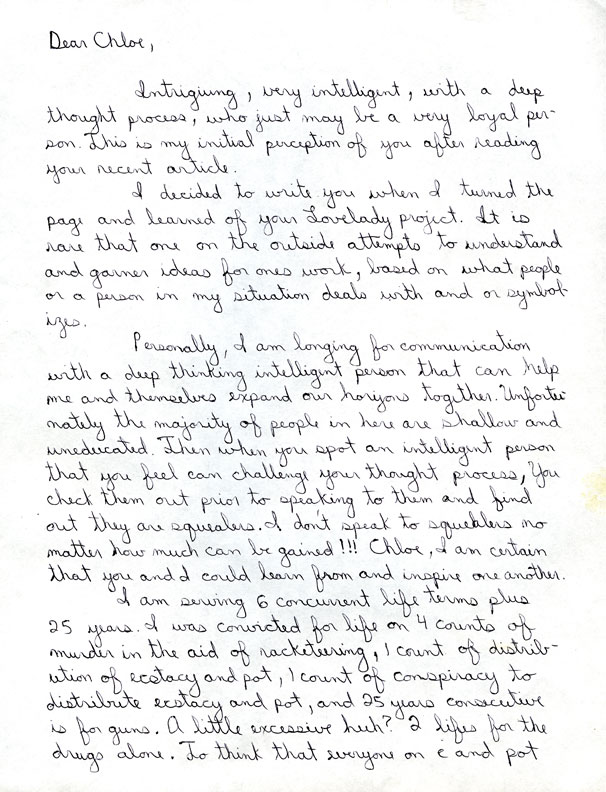 Dear Chloe,
Intrigiung, very intelligent, with a deep
thought process, who just may be a very loyal per-
son. This is my initial perception of you after reading
your recent article.
I decided to write you when I turned the
page and learned of your Lovelady project. It is
rare that one on the outside attempts to understand
and garner ideas for ones work, based on what people
or a person in my situation deals with and or symbol-
izes.
Personally, I am longing for communication
with a deep thinking intelligent person that can help
me and themselves expand our horizons together. Unfortu
nately the majority of people in here are shallow and
uneducated. Then when you spot an intelligent person
that you feel can challenge your thought process, You
check them out prior to speaking to them and find
out they are squealers. I don't speak to squealers no
matter how much can be gained!!! Chloe, I am certain
that you and I could learn from and inspire one another.
I am serving 6 concurrent life terms plus
25 years. I was convicted for life on 4 counts of
murder in the aid of racketeering, 1 count of distrib-
ution of ecstacy and pot, 1 count of conspiracy to
distribute ecstacy and pot, and 25 years consecutive
is for guns. A little excessive huh? 2 lifes for the
drugs alone. To think that everyone on e and pot